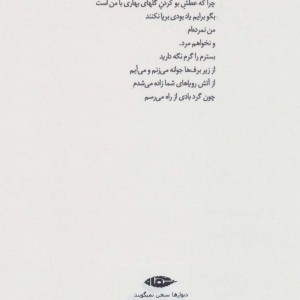 چرا که عطشِ بو کردنِ گلهای بهاری با من است
بگو برایم یادبودی برپا نکنند
من نمرده‌ام
و نخواهم مرد.
بسترم را گرم نگه دارید
از زیر برف‌ها جوانه می‌زنم و می‌آیم
از آتش رویاهای شما زاده می‌شدم
چون گرد بادی از راه می‌رسم
دیوارها سخن نمیگویند